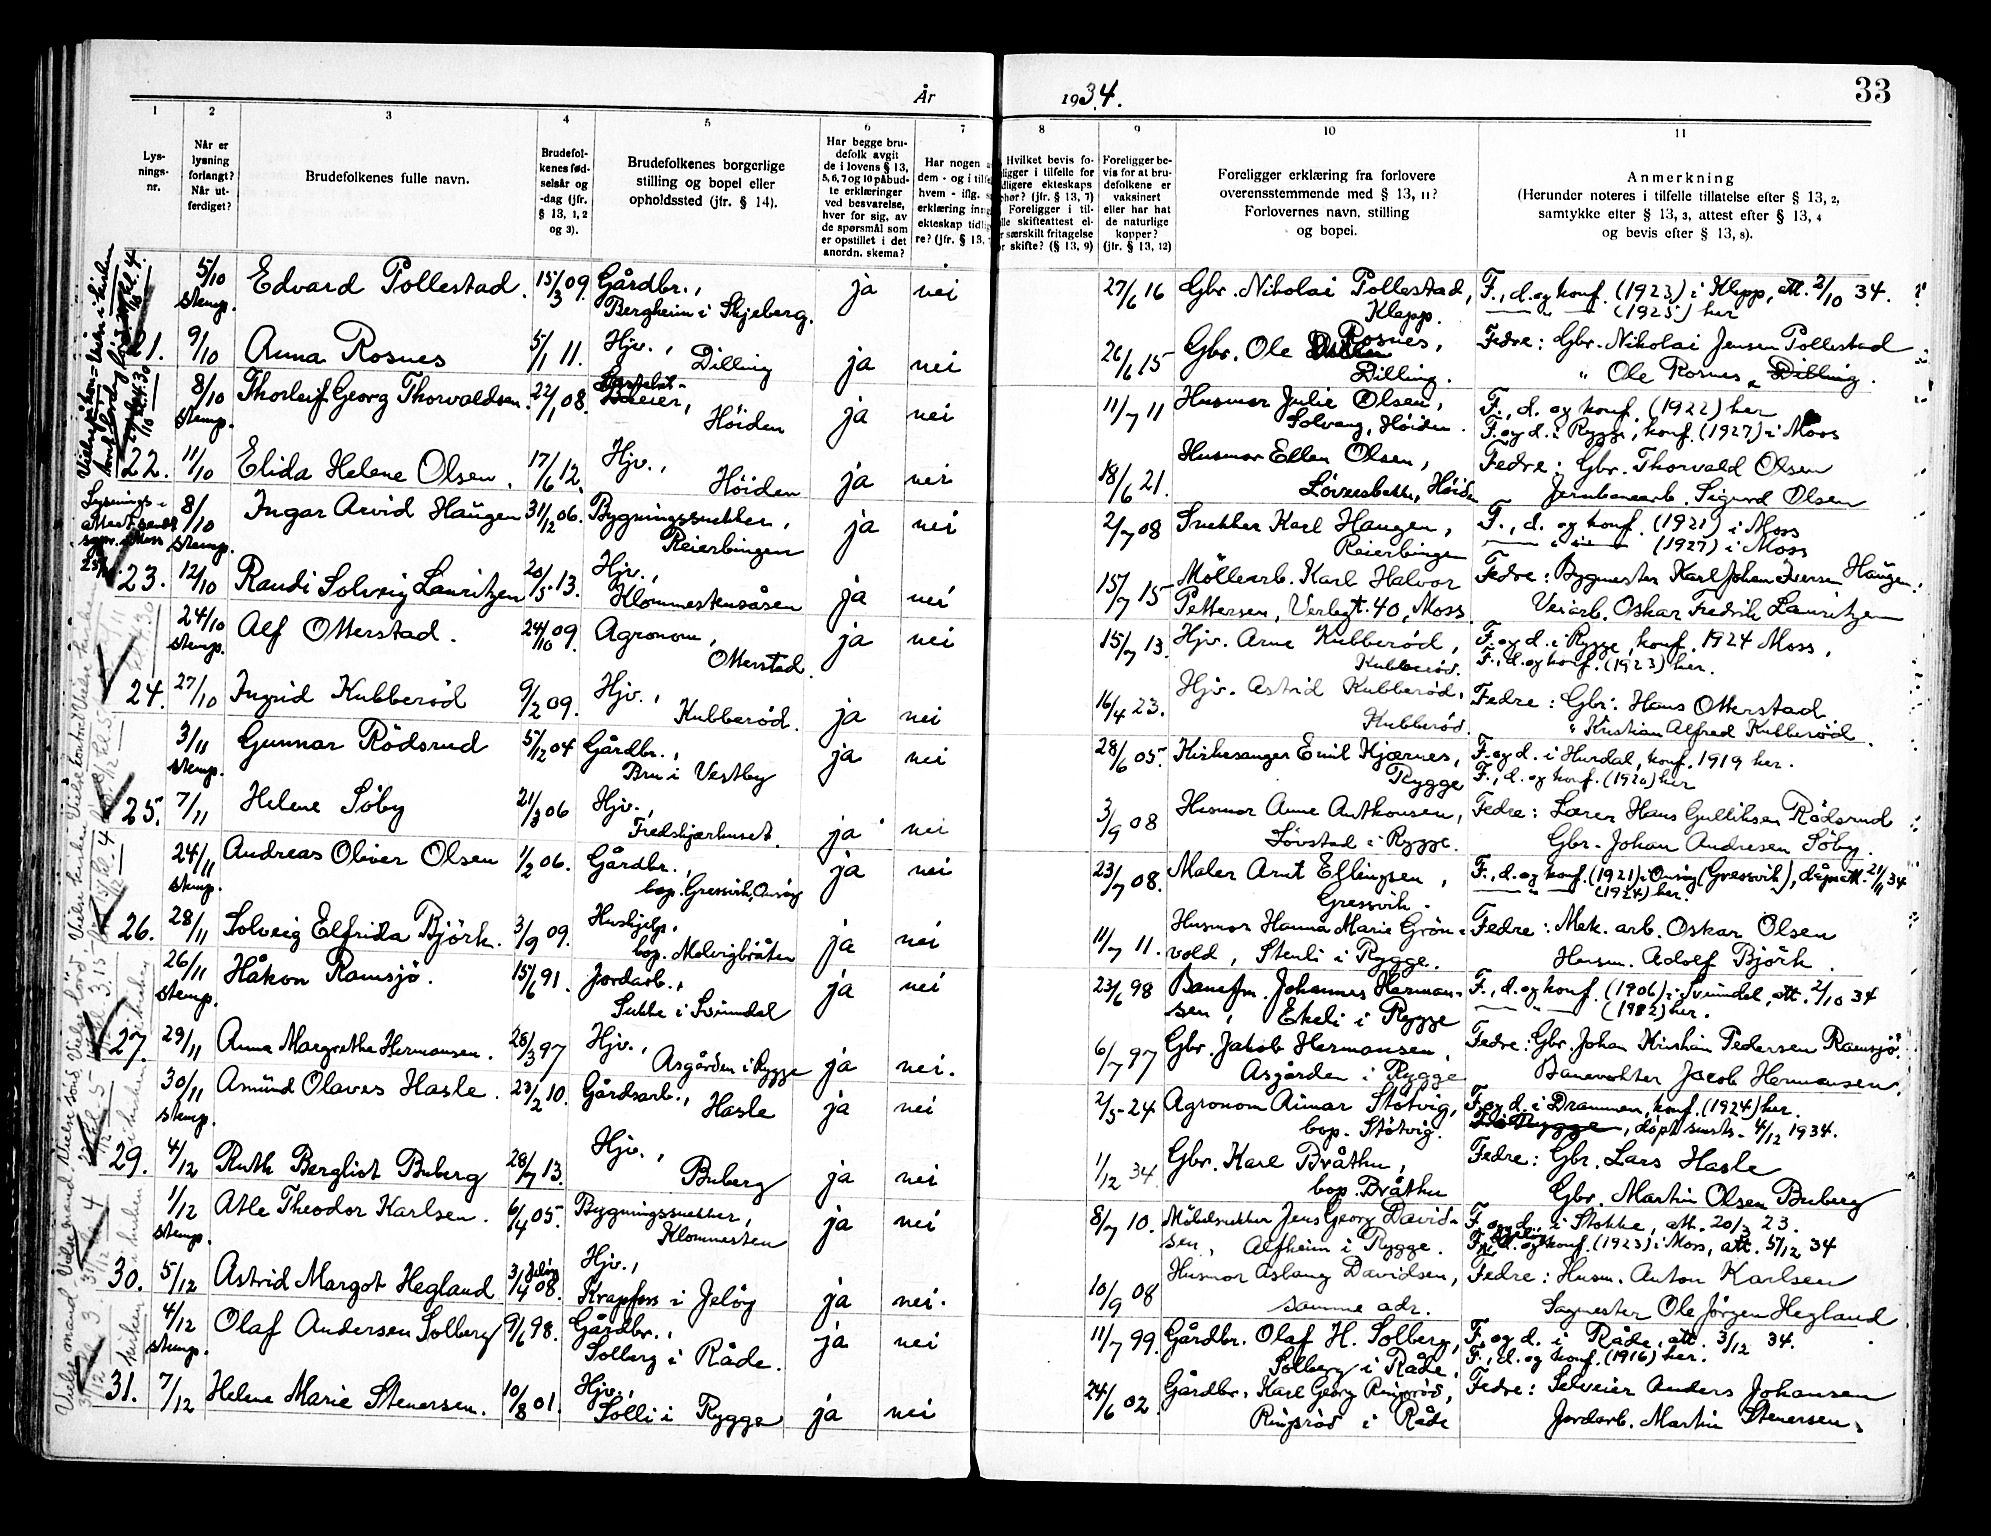 År 1934. 33
1 2 3 4 5 6 7 8 9 10 11
Lys-
nings-
nr.
Når er
lysning
forlangt?
Når ut-
ferdiget?
Brudefolkenes fulle navn.
Brudefol-
kenes fød-
selsår og
-dag (jfr.
§ 13, 1, 2
og 3).
Brudefolkenes borgerlige
stilling og bopel eller
opholdssted (jfr. § 14).
Har begge bru-
defolk avgit
de i lovens § 13,
5, 6, 7 og 10 påbud-
te erklæringer
ved besvarelse,
hver for sig, av
de spørsmål som
er opstillet i det
anordn. skema?
Har nogen
dem - og i tilfe
hvem - iflg.
erklæring inng
ekteskap tidli
re? (jfr. § 13,
Hvilket bevis fo-
ligger i tilfelle for
dligere ekteskaps
hør? (jfr. § 13, 7)
Foreligger i til-
lle skifteattest el-
r særskilt fritagelse
r skifte? (§ 13, 9)
Foreligger be-
vis for at bru-
defolkene er
vaksinert
eller har hat
de naturlige
kopper?
(jfr. § 13, 12)
Foreligger erklæring fra forlovere
overensstemmende med § 13, 11?
Forlovernes navn, stilling
og bopel.
Anmerkning
(Herunder noteres i tilfelle tillatelse efter § 13, 2,
samtykke efter § 13, 3, attest efter § 13, 4
og bevis efter § 13, 8).
5/10 stemp. Edvard Pollestad. 15/3 09 Gårdbr., ja nei 27/6 16 Gbr. Nikolai Pollestad, F., d. og konf. (1923) i Klepp, att. 2/10 34.
Bergheim i Skjeberg. Klepp. (1925) her
21. 9/10 Anna Rosnes 5/1 11. Hjv., Dilling ja nei 26/6 15 Gbr. Ole Rosnes, Fedre: Gbr. Nikolai Jensen Pollestad
Dilling. " Ole Rosnes, Dilling.
8/10 stemp. Thorleif Georg Thorvaldsen. 22/1 08. Høiden ja nei 11/7 11 Husmor Julie Olsen, F., d. og konf. (1922) her
Solvang, Høiden. F. og d. i Rygge, konf. (1927) i Moss
22. 11/10 Elida Helene Olsen. 17/6 12. Hjv., Høiden ja nei 18/6 21. Husmor Ellen Olsen, Fedre: Gbr. Thorvald Olsen
Høiden Jernbanearb. Sigurd Olsen
8/10 stemp. Ingar Arvid Haugen 31/12 06. Bygningssnekker, ja nei 2/7 08 Snekker Karl Haugen, F., d. og konf. (1921) i Moss
Reierbingen Reierbingen (1927) i Moss
23. 12/10 Randi Solveig Lauritzen 20/5 13. Hjv., ja nei 15/7 15 Møllearb. Karl Halvor Fedre: Bygmester Karl Johan Iversen Haugen.
Klommestensåsen Pettersen, Verlegt. 40, Moss Veiarb. Oskar Fredrik Lauritzen
24/10 stemp. Alf Otterstad. 24/10 09. Agronom, ja nei 15/7 13. Hjv. Arne Kubberød, F. og d. i Rygge, konf. 1924 Moss,
Otterstad. Kubberød. F., d. og konf. (1923) her.
24. 27/10 Ingrid Kubberød 9/2 09. Hjv., ja nei 16/4 23. Hjv. Astrid Kubberød, Fedre: Gbr. Hans Otterstad
Kubberød. Kubberød. " Kristian Alfred Kubberød.
3/11 stemp. Gunnar Rödsrud 5/12 04 Gårdbr., ja nei 28/6 05. Kirkesanger Emil Kjærnes, F. og d. i Hurdal, konf. 1919 her.
Bru i Vestby Rygge F., d. og konf. (1920) her
25. 7/11 Helene Søby 21/3 06 Hjv., ja nei 3/9 08 Husmor Anne Anthonsen, Fedre: Lærer Hans Gulliksen Rødsrud
Fredskjærhuset. Løvstad i Rygge. Gbr. Johan Andresen Søby.
24/11 stemp. Andreas Oliver Olsen 1/2 06. Gårdbr., ja nei 23/7 08. Maler Arnt Ellingsen, F., d. og konf. (1921) i Onsøy (Gressvik), dåpsatt. 21/11 34
bop. Gressvik, Onsøy Gressvik. (1924) her.
26. 28/11 Solveig Elfrida Björk. 3/9 09. Hushjelp, ja nei 11/7 11. Husmor Hanna Marie Grön- Fedre: Mek. arb. Oskar Olsen
bop. Melvigbråten vold, Stenli i Rygge. Husm. Adolf Björk.
26/11 stemp. Håkon Ramsjö. 15/6 91. Jordarb., ja nei 23/6 98 Banefm. Johannes Herman- F., d. og konf. (1906) i Svinndal, att. 2/10 34
Sukke i Svinndal sen, Ekeli i Rygge (1912) her.
27. 29/11 Anna Margrethe Hermansen. 28/3 97 Hjv., ja nei. 6/7 97 Gbr. Jakob Hermansen, Fedre: Gbr. Johan Kristian Pedersen Ramsjö.
Asgården i Rygge Asgården i Rygge Banevokter Jacob Hermansen.
30/11 stemp. Amund Olaves Hasle. 23/2 10. Gårdsarb., ja nei 2/5-24 Agronom Aimar Støtvig, F. og d. i Drammen, konf. (1924) her.
Hasle bop. Støtvig. F. i Rygge, döpt 4/12 1934.
29. 4/12 Ruth Bergliot Buberg 28/7 13. Hjv., ja nei 1/12 34 Gbr. Karl Bråthu, Fedre: Gbr. Lars Hasle
Buberg bop. Bråthu Gbr. Martin Olsen Buberg
1/12 stemp. Atle Theodor Karlsen. 6/4 05. Bygningssnekker, ja nei 8/7 10. Møbelsnekker Jens Georg David- F. og d. i Stokke, att. 20/3 23.
Klommesten sen, Alfheim i Rygge. F., d. og konf. (1923) i Moss, att. 5/12 34
30. 5/12 Astrid Margot Hegland 3/4 08. Hjv., ja nei. 10/9 08 Husmor Aslaug Davidsen, Fedre: Husm. Anton Karlsen
Krapfoss i Jeløy samme adr. Sagmester Ole Jörgen Hegland
4/12 stemp. Olaf Andersen Solberg 9/6 98. Gårdbr., ja nei 11/7 99. Gårdbr. Olaf H. Solberg, F. og d. i Råde, att. 3/12 34.
Solberg i Råde. Solberg i Råde, F., d. og konf. (1916) her.
31. 7/12 Helene Marie Stenersen. 10/8 01. Hjv., ja nei 24/6 02. Gårdbr. Karl Georg Ringsrød, Fedre: Selveier Anders Johansen
Solli i Rygge Ringsrød i Råde Jordarb. Martin Stenersen.